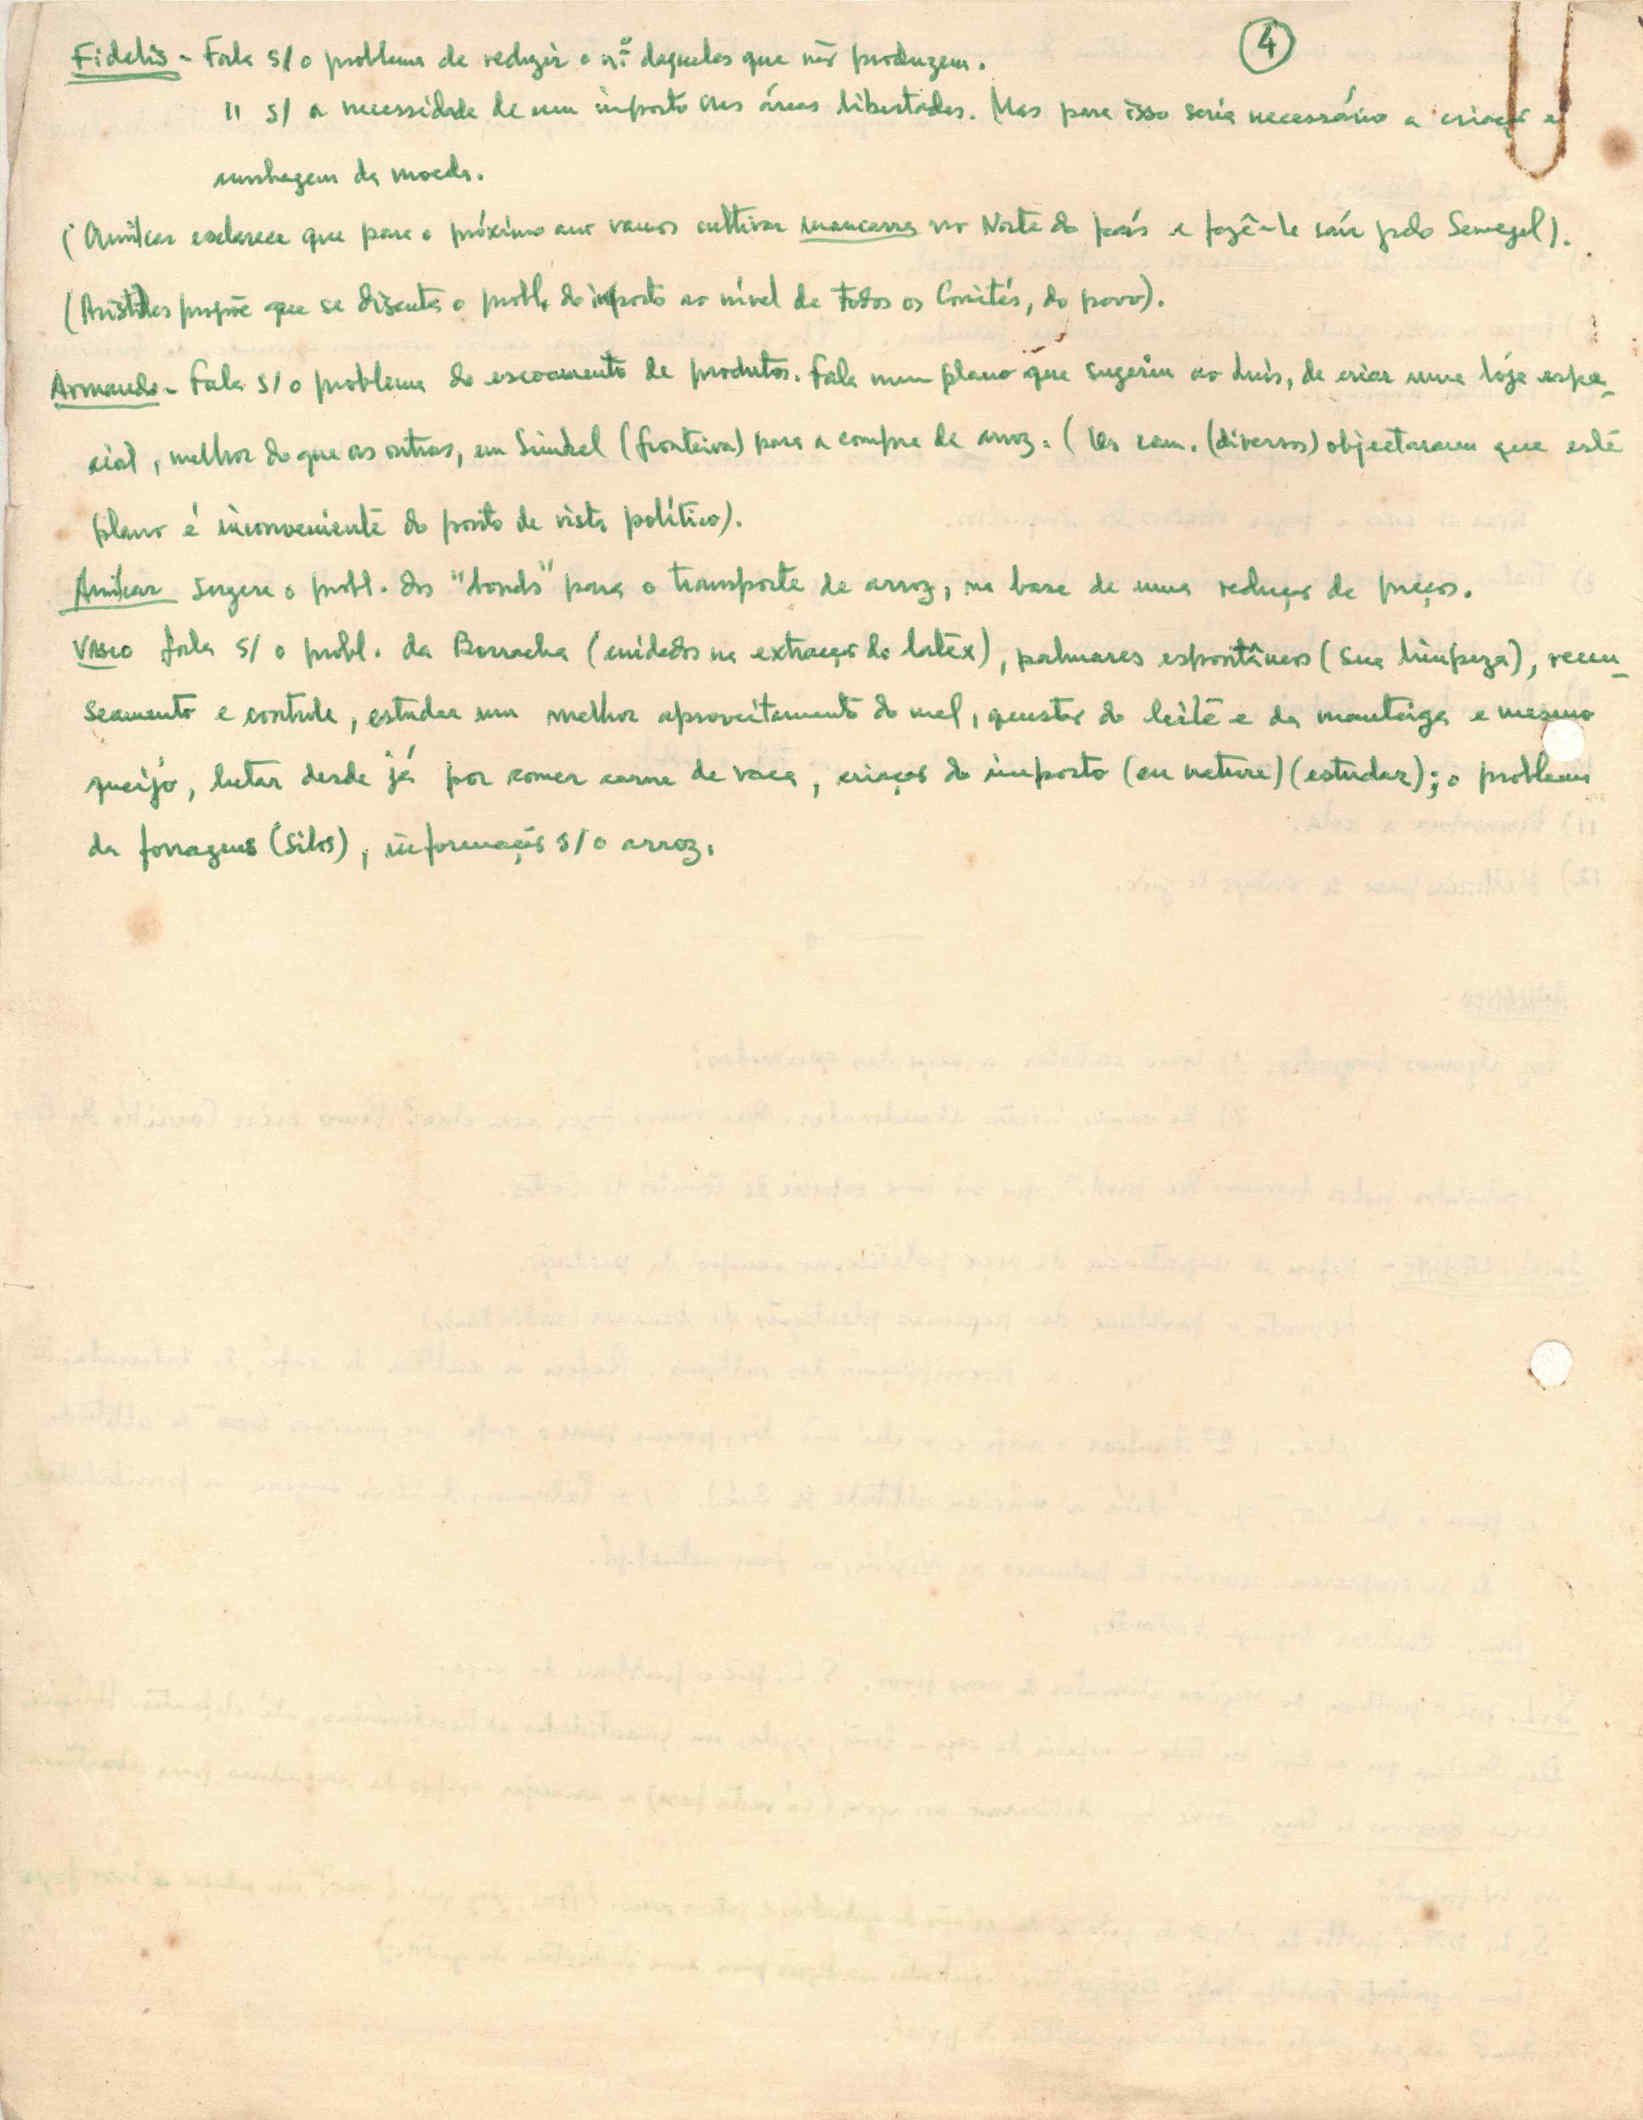 4
Fidelis - Fala s/ o problema de reduzir o n.º daqueles que não produzem.
" s/ a necessidade de um imposto nas áreas libertadas. Mas para isso seria necessário a criação e
cunhagem da moeda.
(Amílcar esclarece que para o próximo ano vamos cultivar mancarra no Norte do país e fazê-la sair pelo Senegal).
(Aristides propõe que se discuta o probl. do imposto ao nível de todos os Comités, do povo).
Armando - Fala s/ o problema do escoamento de produtos. Fala num plano que sugeriu ao Luís, de criar uma lója espe-
cial, melhor do que as outras, em (fronteira) para a compra de arroz. (Os cam. (diversos) objectaram que este
plano é inconveniente do ponto de vista político).
Amílcar sugere o probl. dos "bonds" para o transporte de arroz, na base de uma redução de preços.
Vasco fala s/ o probl. da Borracha (cuidados na extração do latex), palmares espontâneos (sua limpeza), recen-
seamento e controle, estudar um melhor aproveitamento do mel, questão do leite e da manteiga e mesmo
queijo, lutar desde já por comer carne de vaca, criação do imposto (en nature) (estudar); o problema
da forragens (silos), informação s/ o arroz.